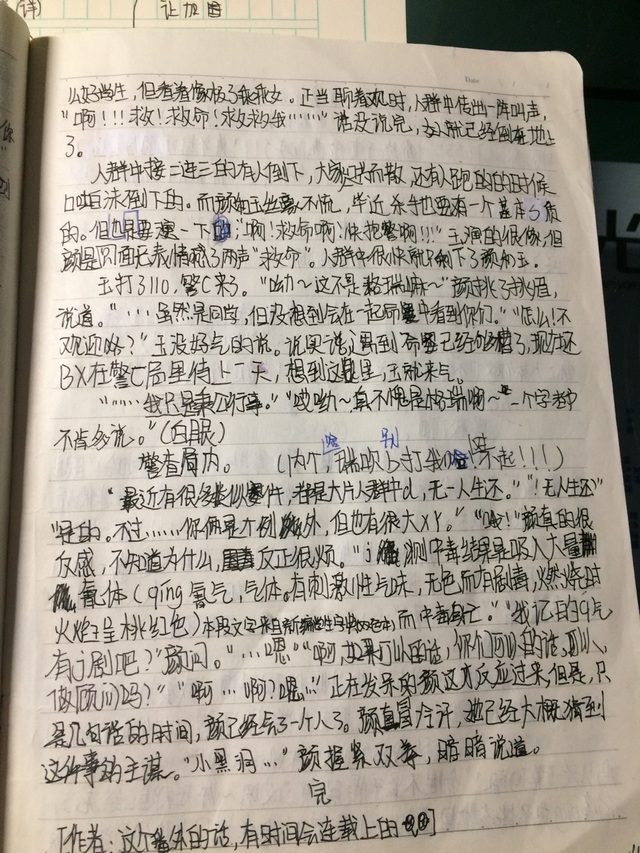 详)
让加回
么好学生，但看着像极了乖乖女。正当聊着欢时，人群中传出一阵叫声，
“啊！！！救！救命！救救我……”话没说完，女人就已经倒在地上
了。
人群中接二连三的有人倒下，大家哄而散，还有人跑的的时候
口吐白沫倒下的。而颜和玉丝毫不慌，毕竟杀手也要有一个基本素质
的。但也是要演一下的，“啊！救命啊！快报警啊！！！”玉演的很像，但
颜是面无表情喊了两声“救命”。人群中很快就剩下了颜和玉。
玉打了110，警C来了。“呦～这不是格瑞嘛～”颜挑了挑眉，
说道。“…虽然是同学，但没想到会在一起命案中看到你们。”“怎么！不
欢迎咯？”玉没好气的说。说实话，遇到命案已经够糟了，现在还
BX在警C局里待上一天，想到这里，玉就来气。
“……我只是秉公行事。”“哎呦～真不愧是格瑞啊～一个字都
不肯多说。”（白眼）
警查局内。（内个，瑞哥别打我 对不起！！！）
“最近有很多类似案件，都是大片人群中d，无一人生还。”“！无人生还”
“是的。不过……你俩是个例外，但也有很大XY。”“哦！”颜真的很
反感，不知道为什么，反正很烦。“检测中毒结果是吸入大量
氰体（qíng 氰气，气体。有刺激性气味，无色而有剧毒，燃烧时
火焰呈桃红色）本段文字来自新编学生字典 而中毒身亡。”“我记的q气
有j剧吧？”颜问。“…嗯”“啊，如果可以的话，你们可以的话，可以
做顾问吗？”“啊…啊？嗯…”正在发呆的颜这才反应过来，但是，只
是几句话的时间，颜已经会了一个人了。颜直冒冷汗，她已经大概猜到
这件事的主谋。“小黑洞…”颜握紧双拳，暗暗说道。
完
[作者：这个番外的话，有时间会连载上的]